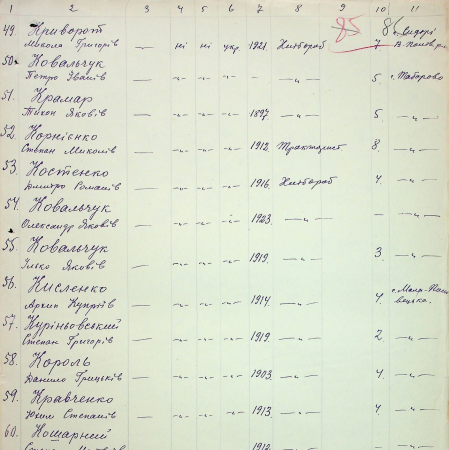 1 2 3 4 5 6 7 8 9 10 11
85 86
49. Криворот с. Видорі
Микола Григорів — ні ні укр. 1921. Хлібороб 7
50. Ковальчук
Петро Іванів — -„- -„- -„- — -„- — 5 с. Таборово
51. Крамар
Тихон Яковів — -„- -„- -„- 1897. — -„- — 5 — -„- —
52. Корнієнко
Степан Миколів — -„- -„- -„- 1912. Тракторист 8. — -„- —
53. Костенко
Дмитро Романів — -„- -„- -„- 1916. Хлібороб 4. — -„- —
54. Ковальчук
Олександр Яковів — -„- -„- -„- 1923. — -„- — — — -„- —
55. Ковальчук
Ілько Яковів — -„- -„- -„- 1919. — -„- — 3. — -„- —
56. Кисленко
Архип Купріїв — -„- -„- -„- 1914. — -„- — 4.
57. Куріньовський
Степан Григорів — -„- -„- -„- 1919. — -„- — 2 — -„- —
58. Король
Данило Грицьків — -„- -„- -„- 1903. — -„- — 4. — -„- —
59. Кравченко
Юхим Степанів — -„- -„- -„- 1913 — -„- — 4. — -„- —
60. Кошарний
1912.